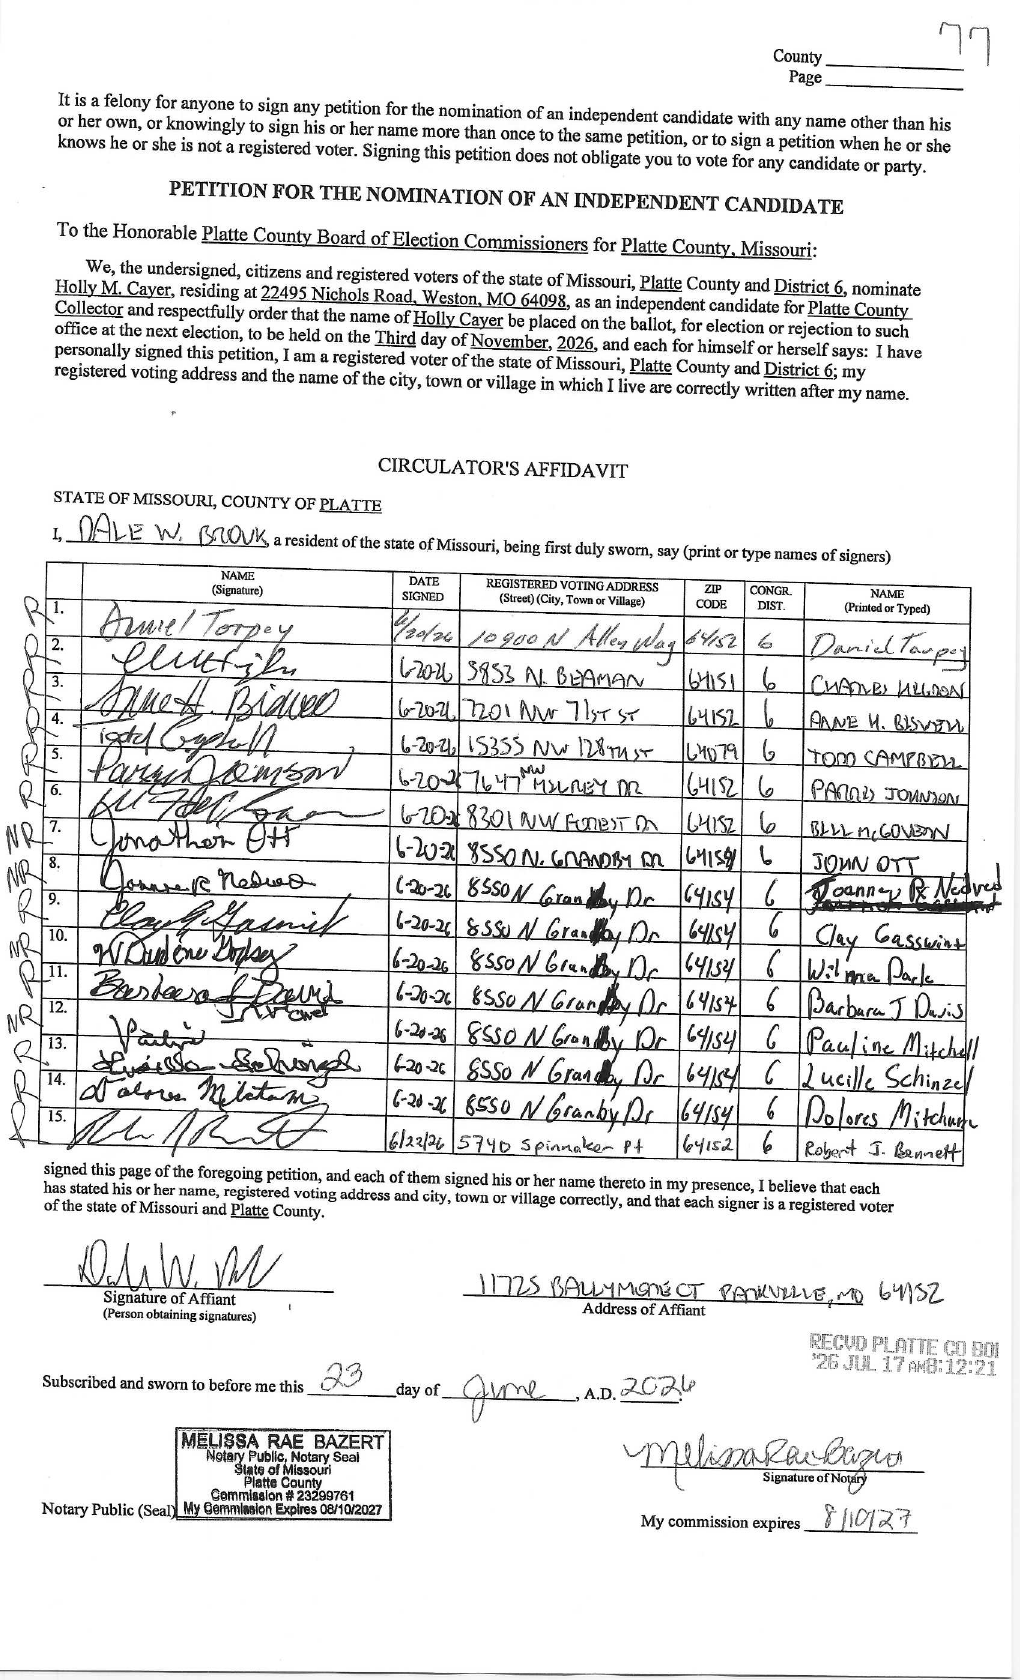 77
County
Page
It is a felony for anyone to sign any petition for the nomination of an independent candidate with any name other than his
or her own, or knowingly to sign his or her name more than once to the same petition, or to sign a petition when he or she
knows he or she is not a registered voter. Signing this petition does not obligate you to vote for any candidate or party.
PETITION FOR THE NOMINATION OF AN INDEPENDENT CANDIDATE
To the Honorable Platte County Board of Election Commissioners for Platte County, Missouri:
We, the undersigned, citizens and registered voters of the state of Missouri, Platte County and District 6, nominate
Holly M. Cayer, residing at 22495 Nichols Road, Weston, MO 64098, as an independent candidate for Platte County
Collector and respectfully order that the name of Holly Cayer be placed on the ballot, for election or rejection to such
office at the next election, to be held on the Third day of November, 2026, and each for himself or herself says: I have
personally signed this petition, I am a registered voter of the state of Missouri, Platte County and District 6; my
registered voting address and the name of the city, town or village in which I live are correctly written after my name.
CIRCULATOR'S AFFIDAVIT
STATE OF MISSOURI, COUNTY OF PLATTE
I, DALE W. BROUK, a resident of the state of Missouri, being first duly sworn, say (print or type names of signers)
NAME (Signature) DATE SIGNED REGISTERED VOTING ADDRESS (Street) (City, Town or Village) ZIP CODE CONGR. DIST. NAME (Printed or Typed)
R 1. Daniel Torpey 6/20/26 10900 N Alley Way 64152 6 Daniel Torpey
R 2. 6-20-26 5853 N. BEAMAN 64151 6 CHARLES
R 3. Anne H. Bidwell 6-20-26 7201 NW 71ST ST 64152 6 ANNE H.
R 4. Todd Campbell 6-20-26 15355 NW 128TH ST 64079 6 TODD CAMPBELL
R 5. Johnson 6-20-26 7647 NW DR 64152 6 JOHNSON
R 6. 6-20-26 8301 NW FOREST DR 64152 6 BILL McGOVERN
NR 7. Jonathon Ott 6-20-26 8550 N. GRANDBY DR 64154 6 JOHN OTT
NR 8. Joanne R Nedved 6-20-26 8550 N Granby Dr 64154 6 Joanney R Nedved
R 9. Clay Gasswint 6-20-26 8550 N Granby Dr 64154 6 Clay Gasswint
NR 10. W Darlene 6-20-26 8550 N Granby Dr 64154 6 Wilma Park
R 11. Barbara J David 6-20-26 8550 N Granby Dr 64154 6 Barbara J Davis
NR 12. 6-20-26 8550 N Granby Dr 64154 6 Pauline Mitchell
R 13. Lucille 6-20-26 8550 N Granby Dr 64154 6 Lucille Schinzel
R 14. Dolores Mitchum 6-20-26 8550 N Granby Dr 64154 6 Dolores Mitchum
R 15. 6/22/26 5740 Spinnaker Pt 64152 6 Robert J. Bennett
signed this page of the foregoing petition, and each of them signed his or her name thereto in my presence, I believe that each
has stated his or her name, registered voting address and city, town or village correctly, and that each signer is a registered voter
of the state of Missouri and Platte County.
Signature of Affiant
(Person obtaining signatures)
11725 BALLYMONE CT PARKVILLE, MO 64152
Address of Affiant
RECVD PLATTE CO BOE
'26 JUL 17 AM8:12:21
Subscribed and sworn to before me this 23 day of June, A.D. 2026
MELISSA RAE BAZERT
Notary Public, Notary Seal
State of Missouri
Platte County
Commission # 23299761
My Commission Expires 08/10/2027
Notary Public (Seal)
Melissa Rae Bazert
Signature of Notary
My commission expires 8/10/27